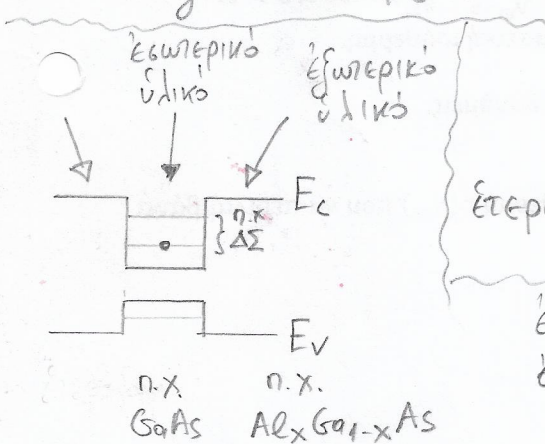 ἐσωτερικό
ὑλικό
ἐξωτερικό
ὑλικό
E_C
π.χ
ΔΣ
ἑτερ
E_V
π.χ.
GaAs
π.χ.
Al_xGa_{1-x}As